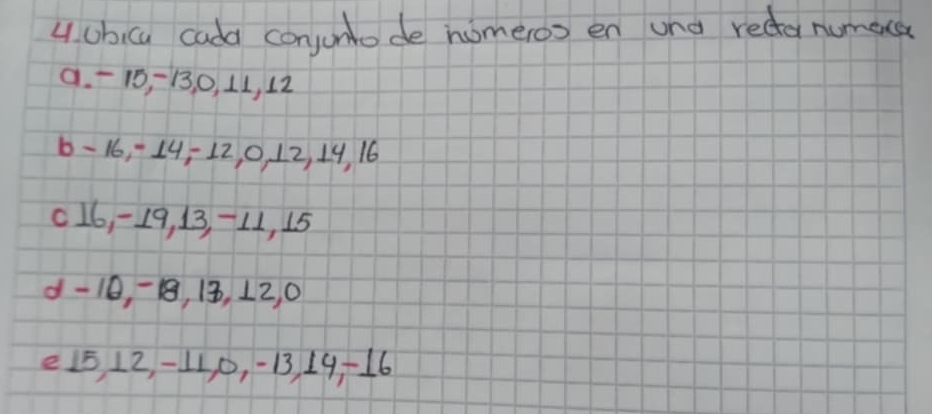 4. Ubica cada conjunto de números en una recta numerica
a. -15, -13, 0, 11, 12
b -16, -14, -12, 0, 12, 14, 16
c 16, -19, 13, -11, 15
d -10, -18, 13, 12, 0
e 15, 12, -11, 0, -13, 14, -16